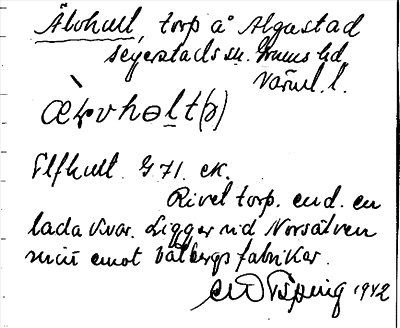 Älvhult, torp å Algustad
Segerstads sn. Grums hd
Värml. l.
æ̀ɽvhɵlt(ə)
Elfhult G 71. ek.
Rivet torp. end. en
lada kvar. Ligger vid Norsälven
mitt emot Vålbergs fabriker.
1942